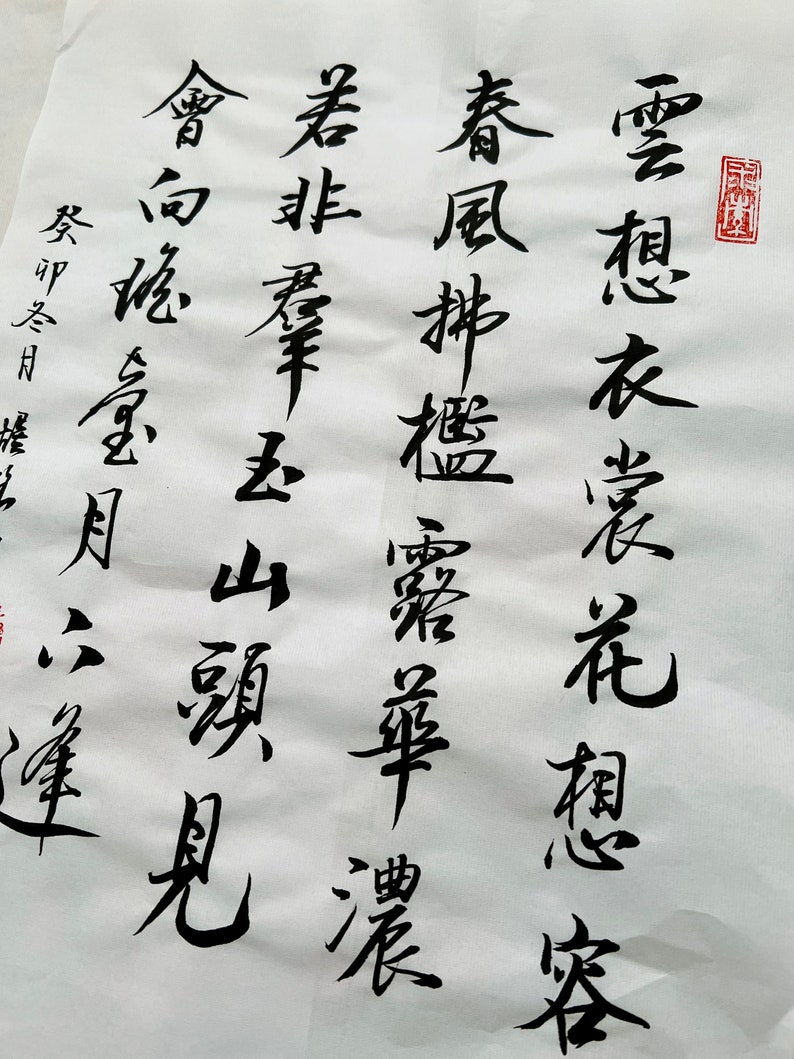 雲想衣裳花想容
春風拂檻露華濃
若非羣玉山頭見
會向瑤臺月下逢
癸卯冬月